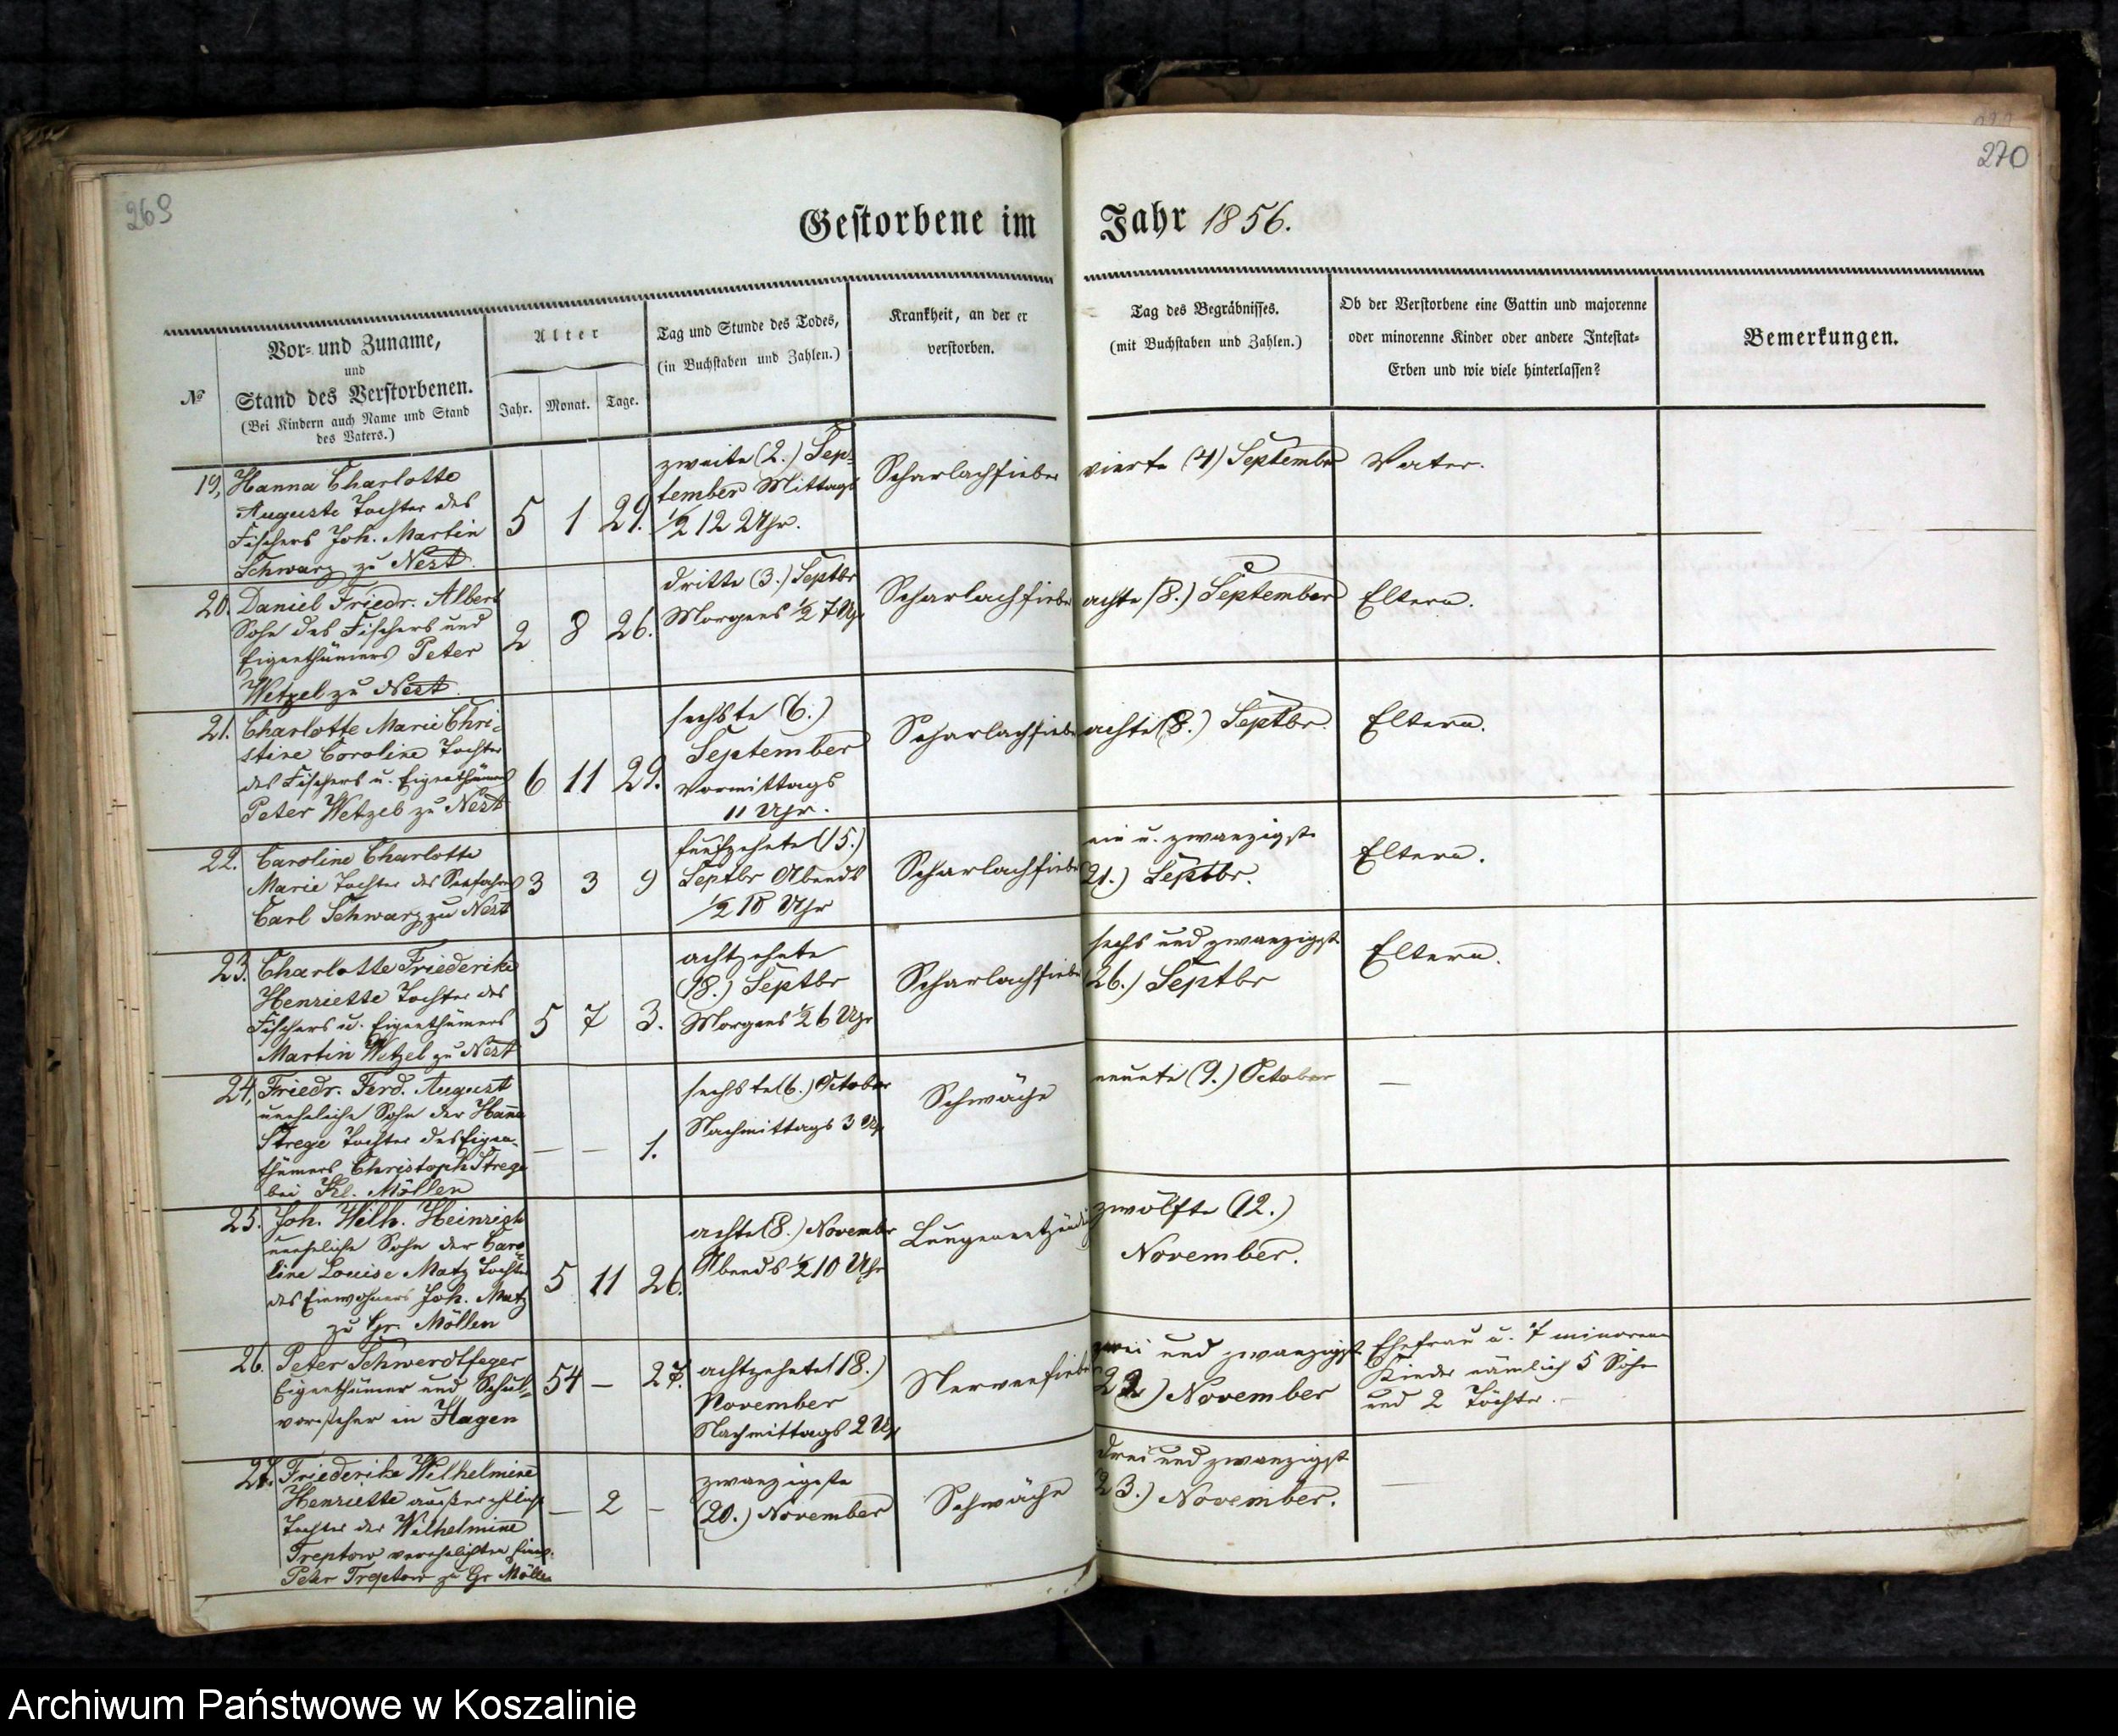 269
270
Gestorbene im Jahr 1856.
№
Vor- und Zuname,
und
Stand des Verstorbenen.
(Bei Kindern auch Name und Stand
des Vaters.)
Alter
Jahr. Monat. Tage.
Tag und Stunde des Todes,
(in Buchstaben und Zahlen.)
Krankheit, an der er
verstorben.
Tag des Begräbnisses.
(mit Buchstaben und Zahlen.)
Ob der Verstorbene eine Gattin und majorenne
oder minorenne Kinder oder andere Intestat-
Erben und wie viele hinterlassen?
Bemerkungen.
19, Hanna Charlotte
Auguste Tochter des
Fischers Joh. Martin
Schwarz zu Nest.
5 1 29.
zweite (2.) Sep-
tember Mittags
½ 12 Uhr.
Scharlachfieber
vierte (4) September
Vater.
20. Daniel Friedr. Albert
Sohn des Fischers und
Eigenthümers Peter
Wetzel zu Nest.
2 8 26.
dritte (3.) Septbr
Morgens ½ 7 Uhr
Scharlachfieber
achte (8.) September
Eltern.
21. Charlotte Marie Chri-
stine Caroline Tochter
des Fischers u. Eigenthümers
Peter Wetzel zu Nest
6 11 29.
sechste (6.)
September
Vormittags
11 Uhr.
Scharlachfieber
achte (8.) Septbr.
Eltern.
22. Caroline Charlotte
Marie Tochter des Seefahrers
Carl Schwarz zu Nest
3 3 9
funfzehnte (15.)
Septbr Abends
½ 10 Uhr
Scharlachfieber
ein u. zwanzigste
21.) Septbr.
Eltern.
23. Charlotte Friederike
Henriette Tochter des
Fischers u. Eigenthümers
Martin Wetzel zu Nest
5 7 3.
achtzehnte
(18.) Septbr
Morgens ½ 6 Uhr
Scharlachfieber
sechs und zwanzigst
26.) Septbr
Eltern.
24, Friedr. Ferd. August
uneheliche Sohn der Hanna
Strege Tochter des Eigen-
thümers Christoph Strege
bei Kl. Möllen
— — 1.
sechste (6.) October
Nachmittags 3 Uhr
Schwäche
neunte (9.) October
—
25. Joh. Wilh. Heinrich
uneheliche Sohn der Caro-
line Louise Matz Tochter
des Einwohners Joh. Matz
zu Gr. Möllen
5 11 26.
achte (8.) November
Abends ½ 10 Uhr
Lungenentzündung
zwölfte (12.)
November.
26. Peter Schwerdtfeger
Eigenthümer und Schul-
vorsteher in Hagen
54 — 27.
achtzehnte (18.)
November
Nachmittags 2 Uhr
Nervenfieber
zwei und zwanzigst
22.) November
Ehefrau u. 7 minorenne
Kinder nämlich 5 Söhne
und 2 Töchter. —
27. Friederike Wilhelmine
Henriette außereheliche
Tochter der Wilhelmine
Treptow verehelichten
Peter Treptow zu Gr Möllen
— 2 —
zwanzigste
(20.) November
Schwäche
drei und zwanzigst
23.) November.
—
Archiwum Państwowe w Koszalinie